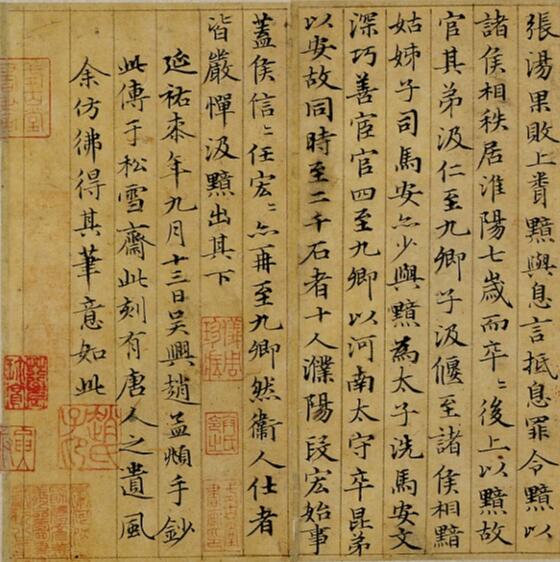 張湯果敗上聞黯與息言抵息罪令黯以
諸侯相秩居淮陽七歲而卒〻後上以黯故
官其弟汲仁至九卿子汲偃至諸侯相黯
姑姊子司馬安亦少與黯為太子洗馬安文
深巧善宦官四至九卿以河南太守卒昆弟
以安故同時至二千石者十人濮陽段宏始事
蓋侯信〻任宏〻亦再至九卿然衛人仕者
皆嚴憚汲黯出其下
延祐柒年九月十三日吳興趙孟頫手鈔
此傳于松雪齋此刻有唐人之遺風
余仿彿得其筆意如此